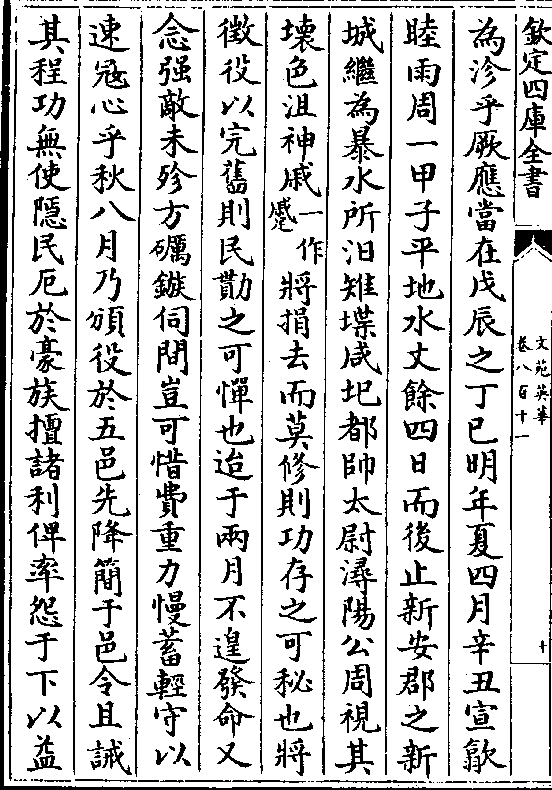 欽定四庫全書
文苑英華
卷八百十一
十
為沴乎厥應當在戊辰之丁巳明年夏四月辛丑宣歙
睦雨周一甲子平地水丈餘四日而後止新安郡之新
城繼為暴水所汨雉堞咸圮都帥太尉潯陽公周視其
壞色沮神戚一作蹙將捐去而莫修則功存之可秘也將
徴役以完舊則民勩之可憚也迨于兩月不遑發命又
念强敵未殄方礪鏃伺間豈可惜費重力慢蓄輕守以
速宼心乎秋八月乃頒役於五邑先降簡于邑令且誡
其程功無使隱民厄於豪族擅諸利俾率怨于下以益